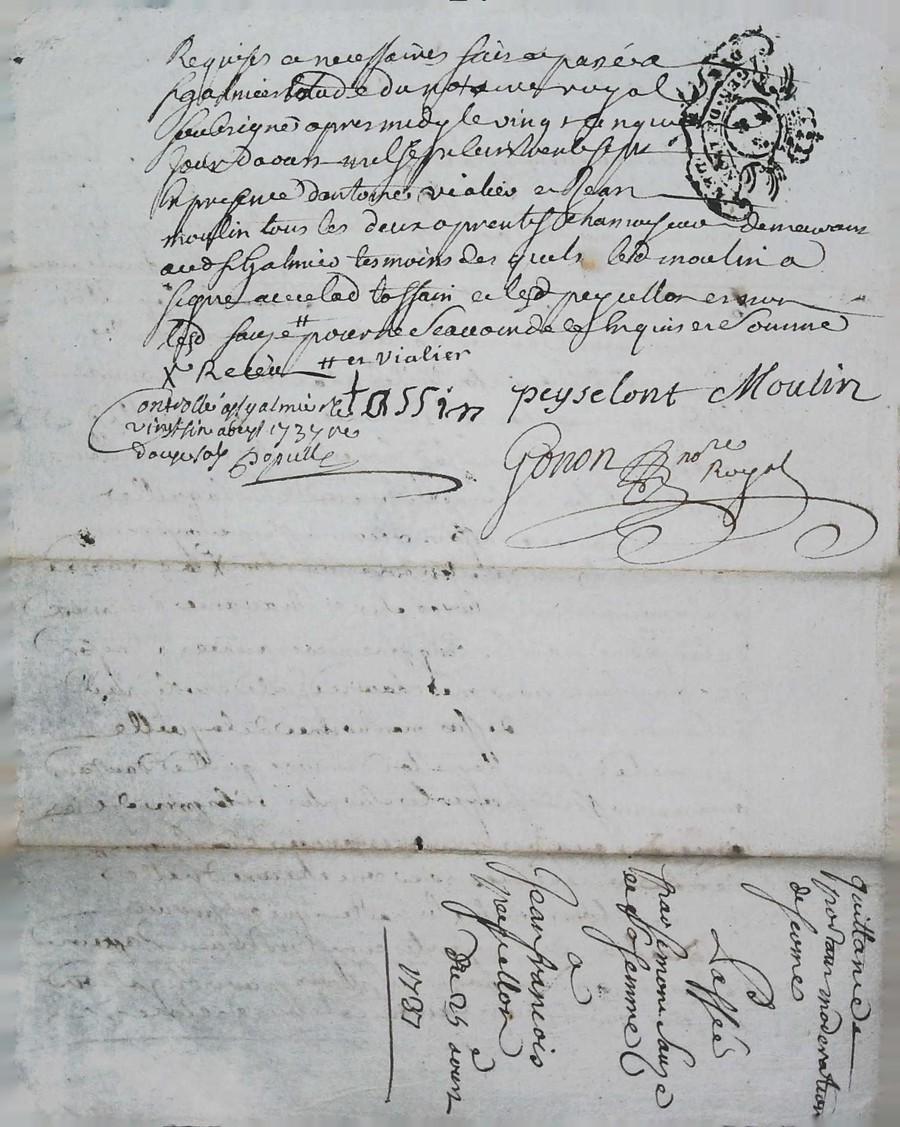 Requises et necessaires fait et passé a
St galmier Etude du notaire royal
soubsigné apres midy le vingt cinquie
Jour daoust mil sept cent trente sept
En presence dantoine vialier et Jean
moulin tous les deux aprentif demeurant
aud St Galmier tesmoins des quels led moulin a
signé avec lad tossain et led peysellon et non
led sauze # pour ne scavoir de ce Enquis et sommé
X Receu # et vialier
tassin peyselont Moulin
Controllé a St galmier le
vingt sin 1737
Gonon nore
Royal
quittance
portant moderation
de somme
Passée
par simon sauze
et sa femme
a
Jean francois
peysellon
du 25 aoust
1737